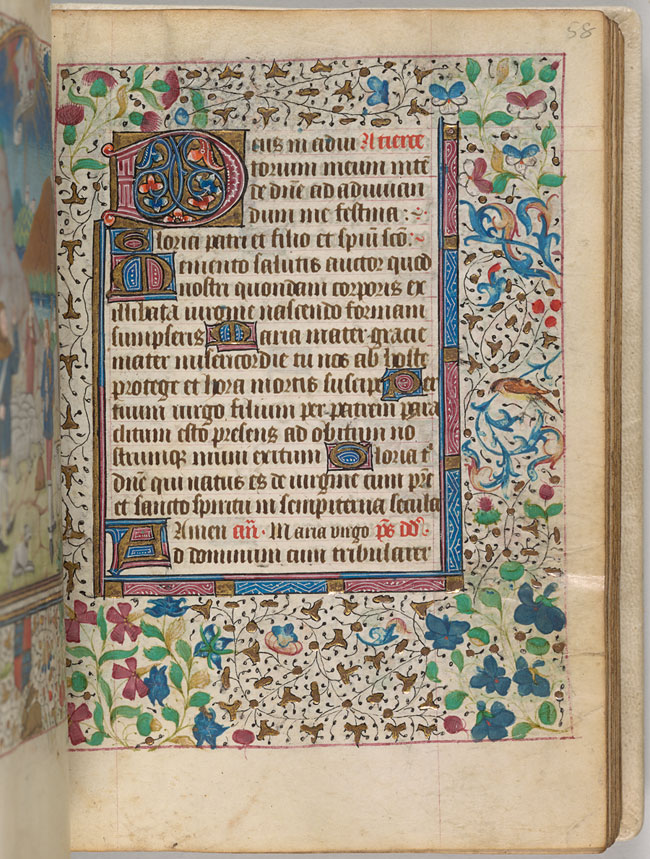 58
Deus in adiu A tierce
torium meum intē
de dn̄e ad adiuuan
dum me festina :
Gloria patri et filio et spiū scō:
Memento salutis auctor quod
nostri quondam corporis ex
illibata uirgine nascendo formam
sumpseris Maria mater gracie
mater misericordie tu nos ab hoste
protege et hora mortis suscipe Per
tuum uirgo filium per patrem para
clitum esto presens ad obitum no
strumqꝫ muni exitum Gloria t̄
dn̄e qui natus es de uirgine cum pr̄e
et sancto spiritu in sempiterna secula
Amen an̄. Maria uirgo p̄s dd̄.
Ad dominum cum tribularer